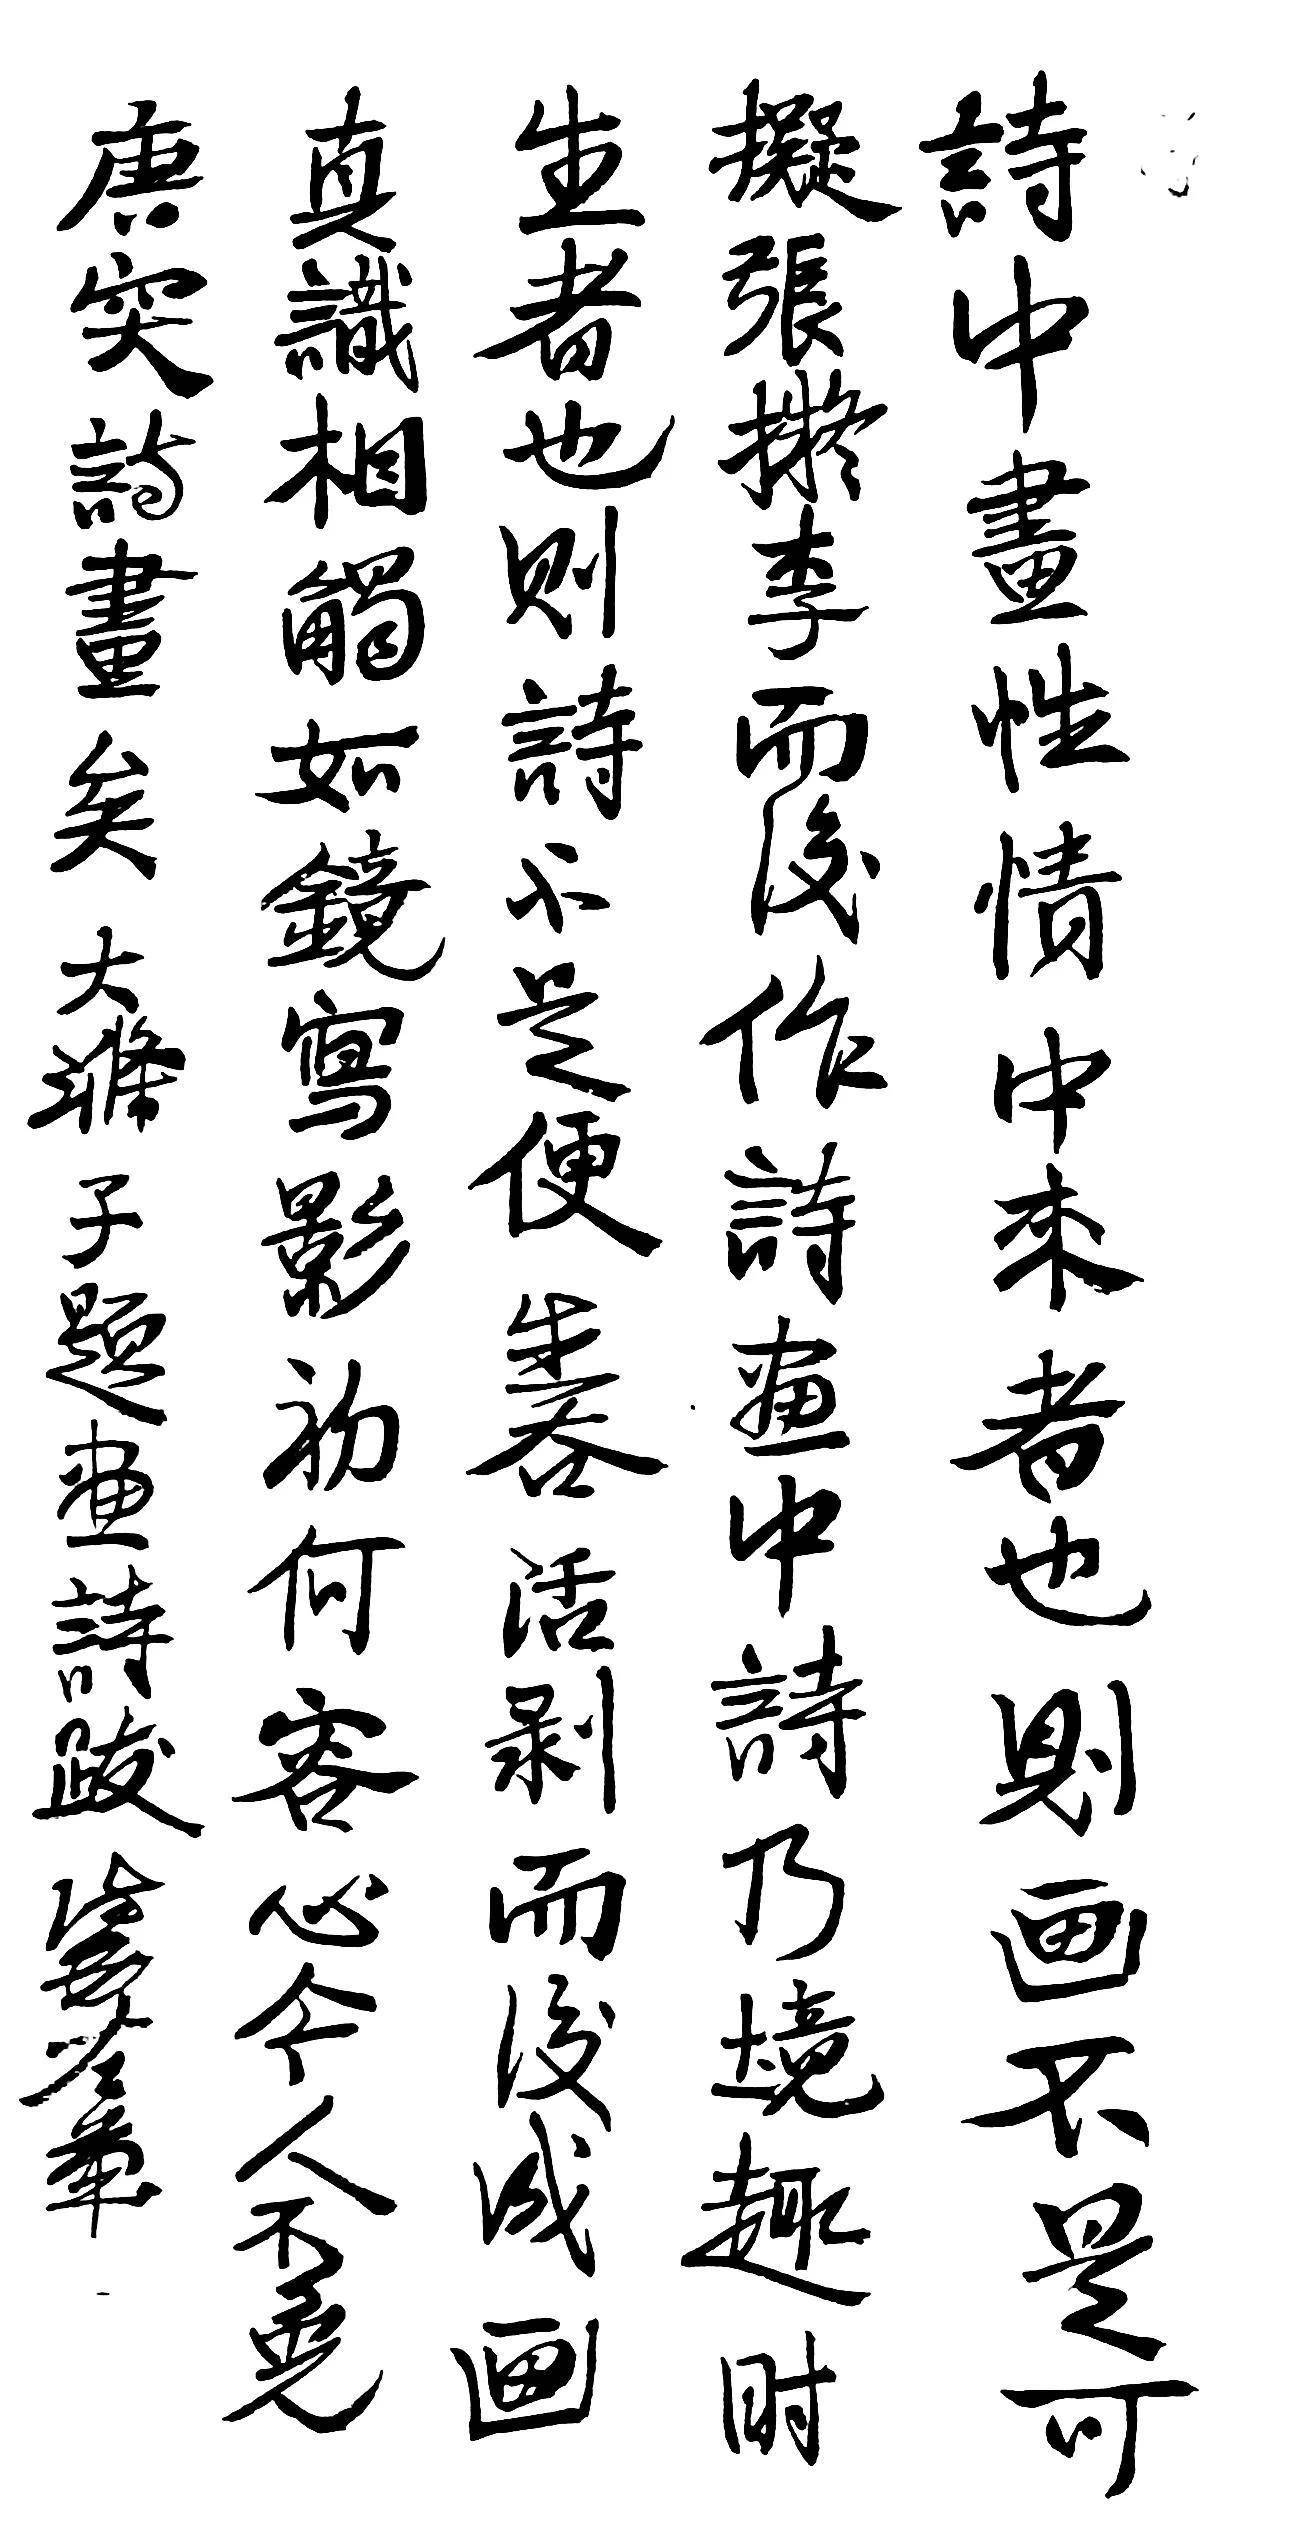 詩中畫性情中來者也則画不是可
擬張擬李而後作詩畫中詩乃境趣時
生者也則詩不是便生吞活剥而後成画
真識相觸如鏡寫影初何容心今人不免
唐突詩畫矣 大滌子題畫詩跋